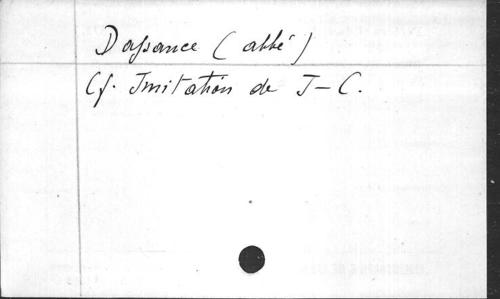 Dassance (abbé)
Cf. Imitation de J-C.